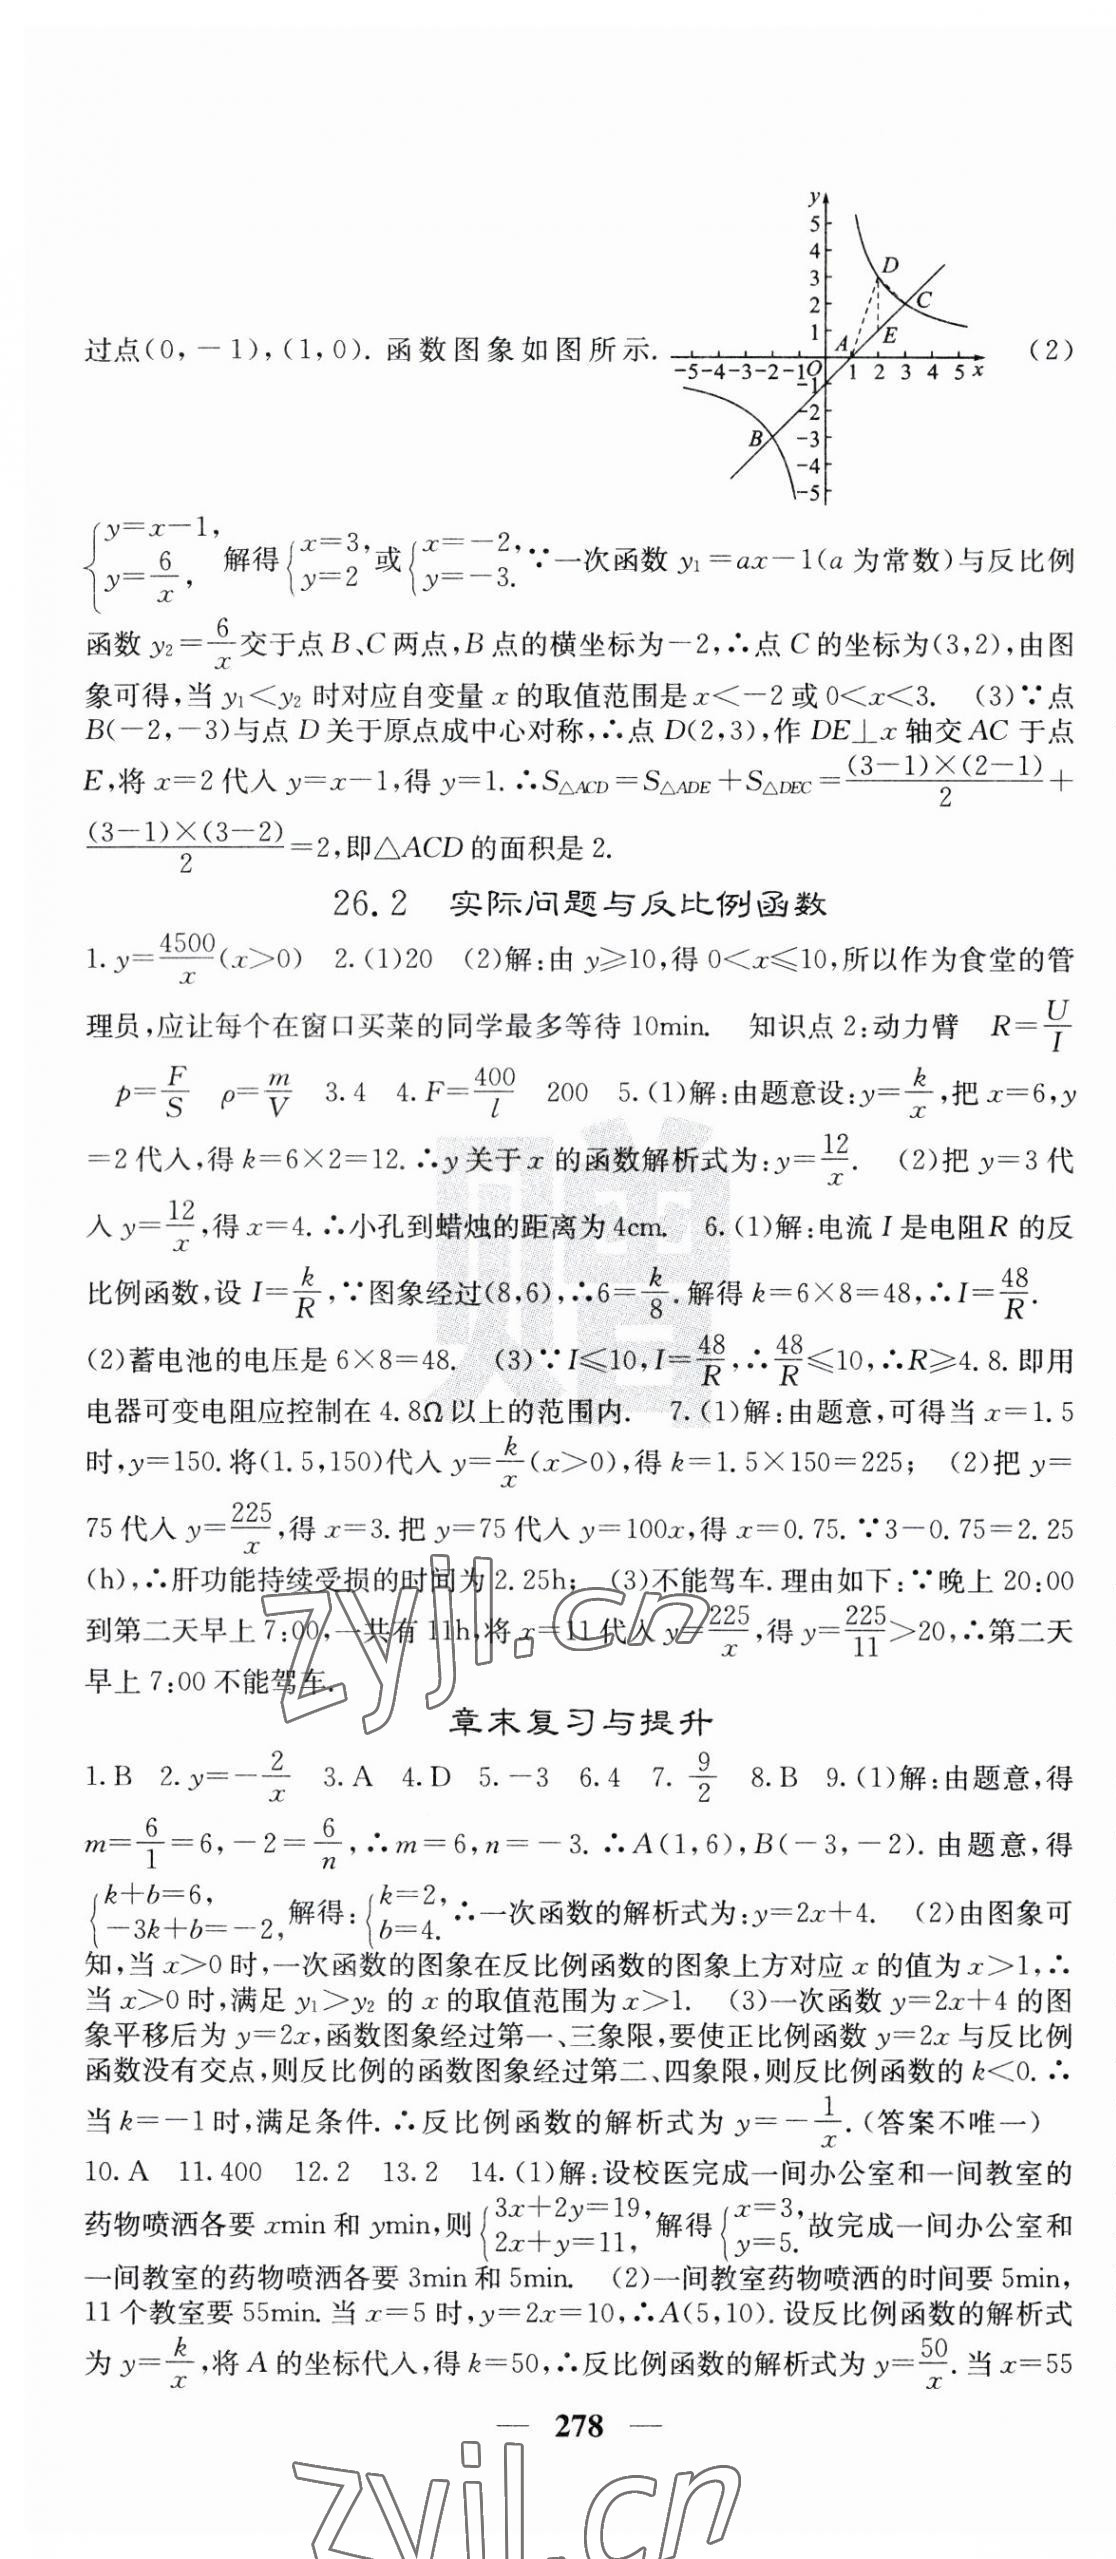 y
5
4
3
2
1
D
C
E
A
过点(0,－1),(1,0). 函数图象如图所示. (2)
-5-4-3-2-1O 1 2 3 4 5 x
-1
-2
B -3
-4
-5
{y=x－1, y=6/x, 解得{x=3, y=2 或{x=－2, y=－3. ∵一次函数 y₁=ax－1(a 为常数)与反比例
函数 y₂=6/x交于点 B、C 两点,B 点的横坐标为－2,∴点 C 的坐标为(3,2),由图
象可得,当 y₁<y₂ 时对应自变量 x 的取值范围是 x<－2 或 0<x<3. (3)∵点
B(－2,－3)与点 D 关于原点成中心对称,∴点 D(2,3),作 DE⊥x 轴交 AC 于点
E,将 x=2 代入 y=x－1,得 y=1. ∴S△ACD=S△ADE+S△DEC=(3－1)×(2－1)/2+
(3－1)×(3－2)/2=2,即△ACD 的面积是 2.
26.2 实际问题与反比例函数
1. y=4500/x(x>0) 2. (1)20 (2)解:由 y≥10,得 0<x≤10,所以作为食堂的管
理员,应让每个在窗口买菜的同学最多等待 10min. 知识点 2:动力臂 R=U/I
p=F/S ρ=m/V 3. 4 4. F=400/l 200 5. (1)解:由题意设:y=k/x,把 x=6,y
=2 代入,得 k=6×2=12. ∴y 关于 x 的函数解析式为:y=12/x. (2)把 y=3 代
入 y=12/x,得 x=4. ∴小孔到蜡烛的距离为 4cm. 6. (1)解:电流 I 是电阻 R 的反
比例函数,设 I=k/R,∵图象经过(8,6),∴6=k/8. 解得 k=6×8=48,∴I=48/R.
(2)蓄电池的电压是 6×8=48. (3)∵I≤10,I=48/R,∴48/R≤10,∴R≥4.8. 即用
电器可变电阻应控制在 4.8Ω 以上的范围内. 7. (1)解:由题意,可得当 x=1.5
时,y=150. 将(1.5,150)代入 y=k/x(x>0),得 k=1.5×150=225; (2)把 y=
75 代入 y=225/x,得 x=3. 把 y=75 代入 y=100x,得 x=0.75. ∵3－0.75=2.25
(h),∴肝功能持续受损的时间为 2.25h; (3)不能驾车. 理由如下:∵晚上 20:00
到第二天早上 7:00,一共有 11h,将 x=11 代入 y=225/x,得 y=225/11>20,∴第二天
早上 7:00 不能驾车.
zyjl.cn
赠
章末复习与提升
1. B 2. y=－2/x 3. A 4. D 5. －3 6. 4 7. 9/2 8. B 9. (1)解:由题意,得
m=6/1=6,－2=6/n,∴m=6,n=－3. ∴A(1,6),B(－3,－2). 由题意,得
{k+b=6, －3k+b=－2, 解得:{k=2, b=4. ∴一次函数的解析式为:y=2x+4. (2)由图象可
知,当 x>0 时,一次函数的图象在反比例函数的图象上方对应 x 的值为 x>1,∴
当 x>0 时,满足 y₁>y₂ 的 x 的取值范围为 x>1. (3)一次函数 y=2x+4 的图
象平移后为 y=2x,函数图象经过第一、三象限,要使正比例函数 y=2x 与反比例
函数没有交点,则反比例的函数图象经过第二、四象限,则反比例函数的 k<0. ∴
当 k=－1 时,满足条件. ∴反比例函数的解析式为 y=－1/x. (答案不唯一)
10. A 11. 400 12. 2 13. 2 14. (1)解:设校医完成一间办公室和一间教室的
药物喷洒各要 xmin 和 ymin,则{3x+2y=19, 2x+y=11, 解得{x=3, y=5. 故完成一间办公室和
一间教室的药物喷洒各要 3min 和 5min. (2)一间教室药物喷洒的时间要 5min,
11 个教室要 55min. 当 x=5 时,y=2x=10,∴A(5,10). 设反比例函数的解析式
为 y=k/x,将 A 的坐标代入,得 k=50,∴反比例函数的解析式为 y=50/x. 当 x=55
— 278 —
zyjl.cn